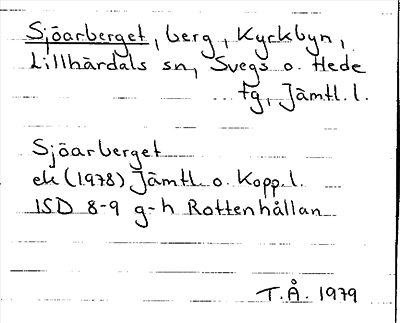 Sjöarberget, berg, Kyrkbyn,
Lillhärdals sn, Svegs o. Hede
tg, Jämtl. l.
Sjöarberget
ek (1978) Jämtl. o. Kopp. l.
15D 8-9 g-h Rottenhållan
T.Å. 1979